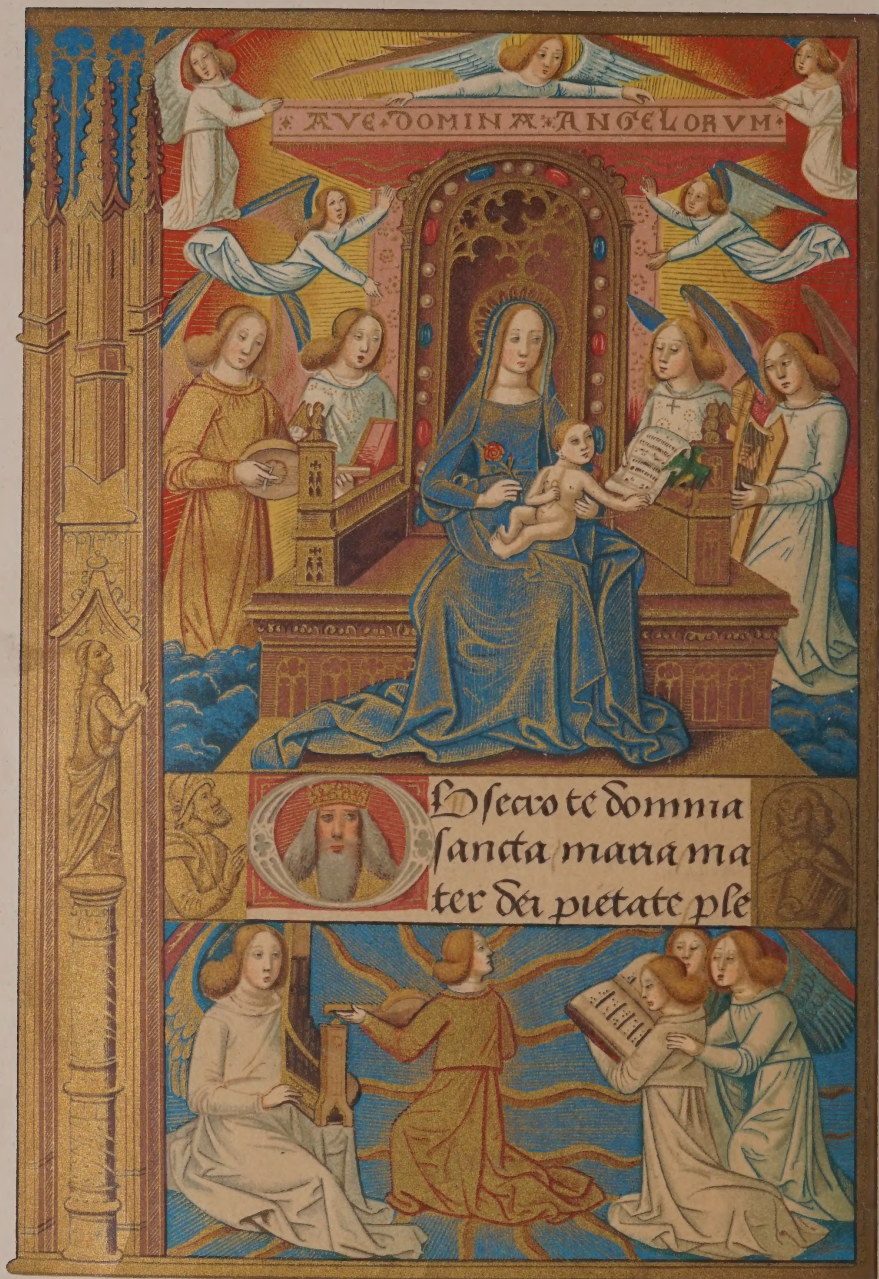 AVE DOMINA ANGELORVM
Obsecro te domina
sancta maria ma
ter dei pietate ple